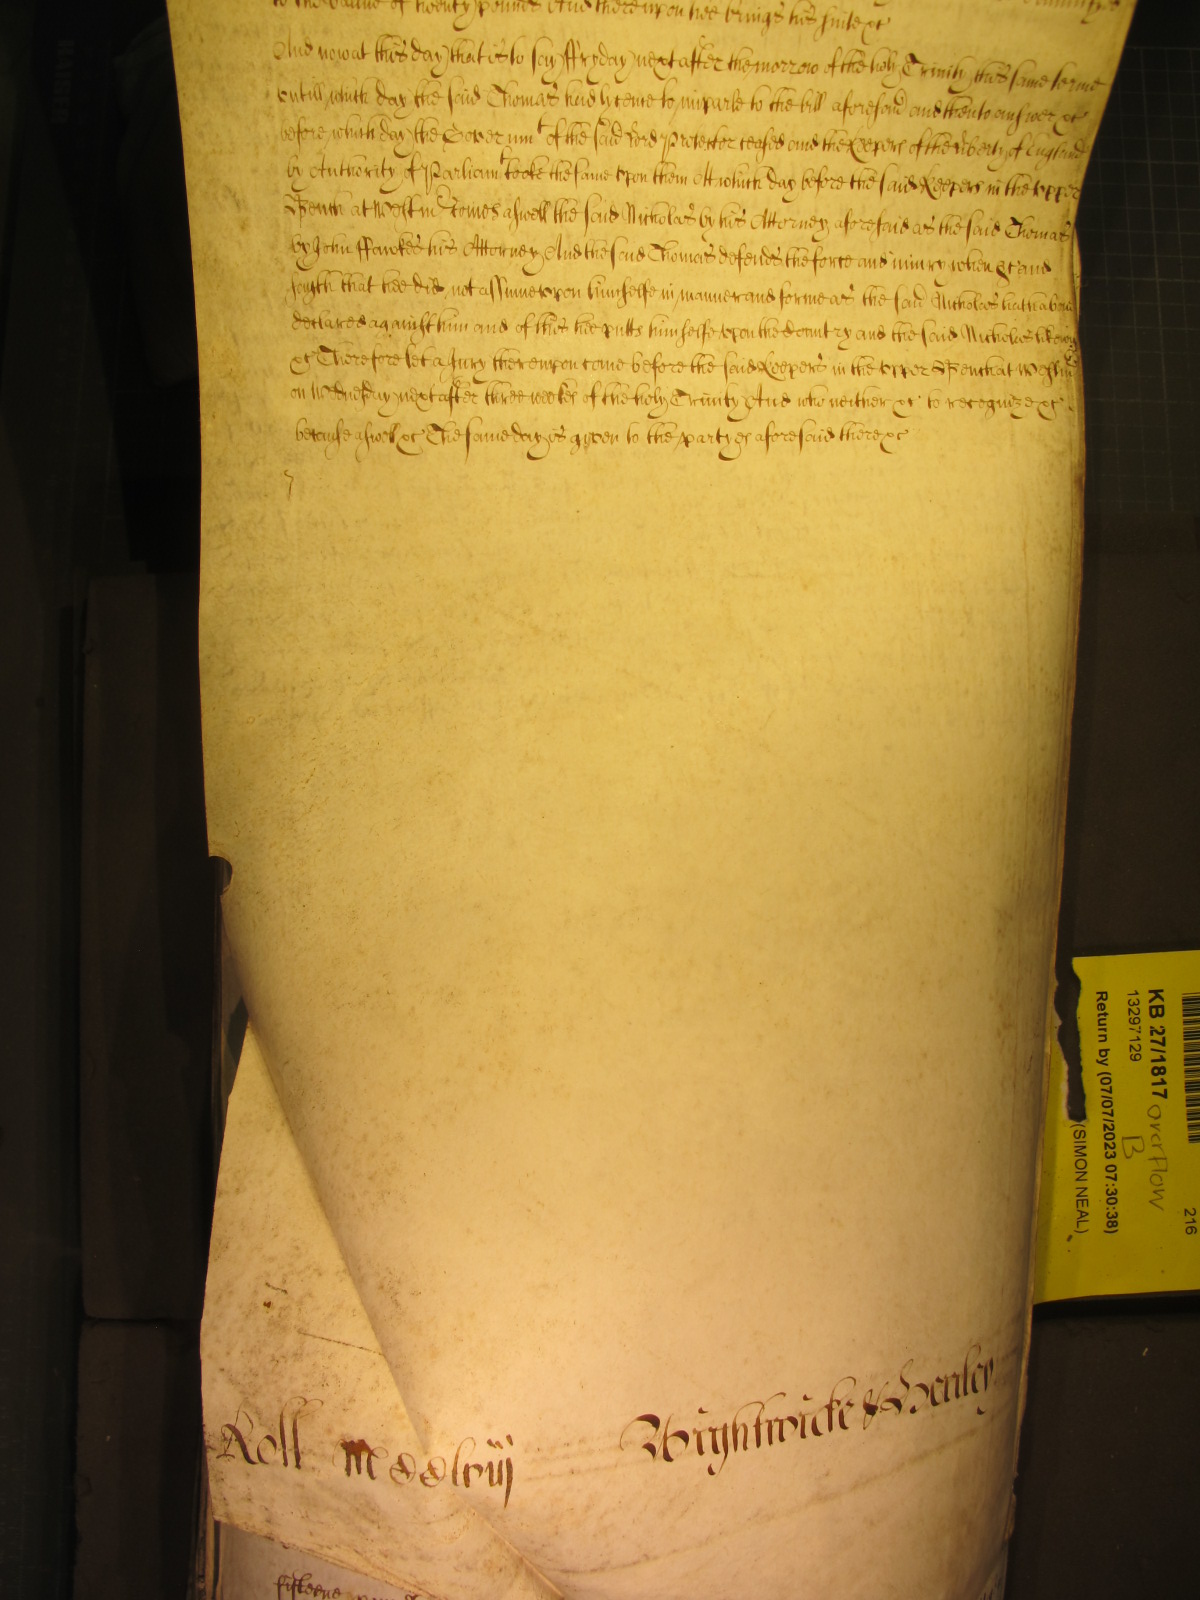 to the value of twenty pounds And thereupon hee brings his suite &c
And now at this day that is to say ffryday next after the morrow of the holy Trinity this same terme
untill which day the said Thomas had lycence to imparle to the bill aforesaid and then to answer &c
before which day the Governmt of the said Lord Protector ceased and the Keepers of the liberty of England
by Authority of Parliamt tooke the same upon them Att which day before the said Keepers in the upper
Bench at Westmr Comes aswell the said Nicholas by his Attorney aforesaid as the said Thomas
by John ffawkes his Attorney And the said Thomas defends the force and iniury when &c and
sayth that hee did not assume upon himselfe in manner and forme as the said Nicholas hath above
declared against him and of this hee putts himselfe upon the Country and the said Nicholas likewise
&c Therefore let a Jury thereupon come before the said Keepers in the upper Bench at Westmr
on Wednesday next after three weekes of the holy Trinity And who neither &c to recognize &c
because aswell &c The same day is given to the partyes aforesaid there &c
KB 27/1817 overflow
B
13297129
Return by (07/07/2023 07:30:38)
(SIMON NEAL)
216
Roll mcclviij
Wightwicke & Henley
fifteene